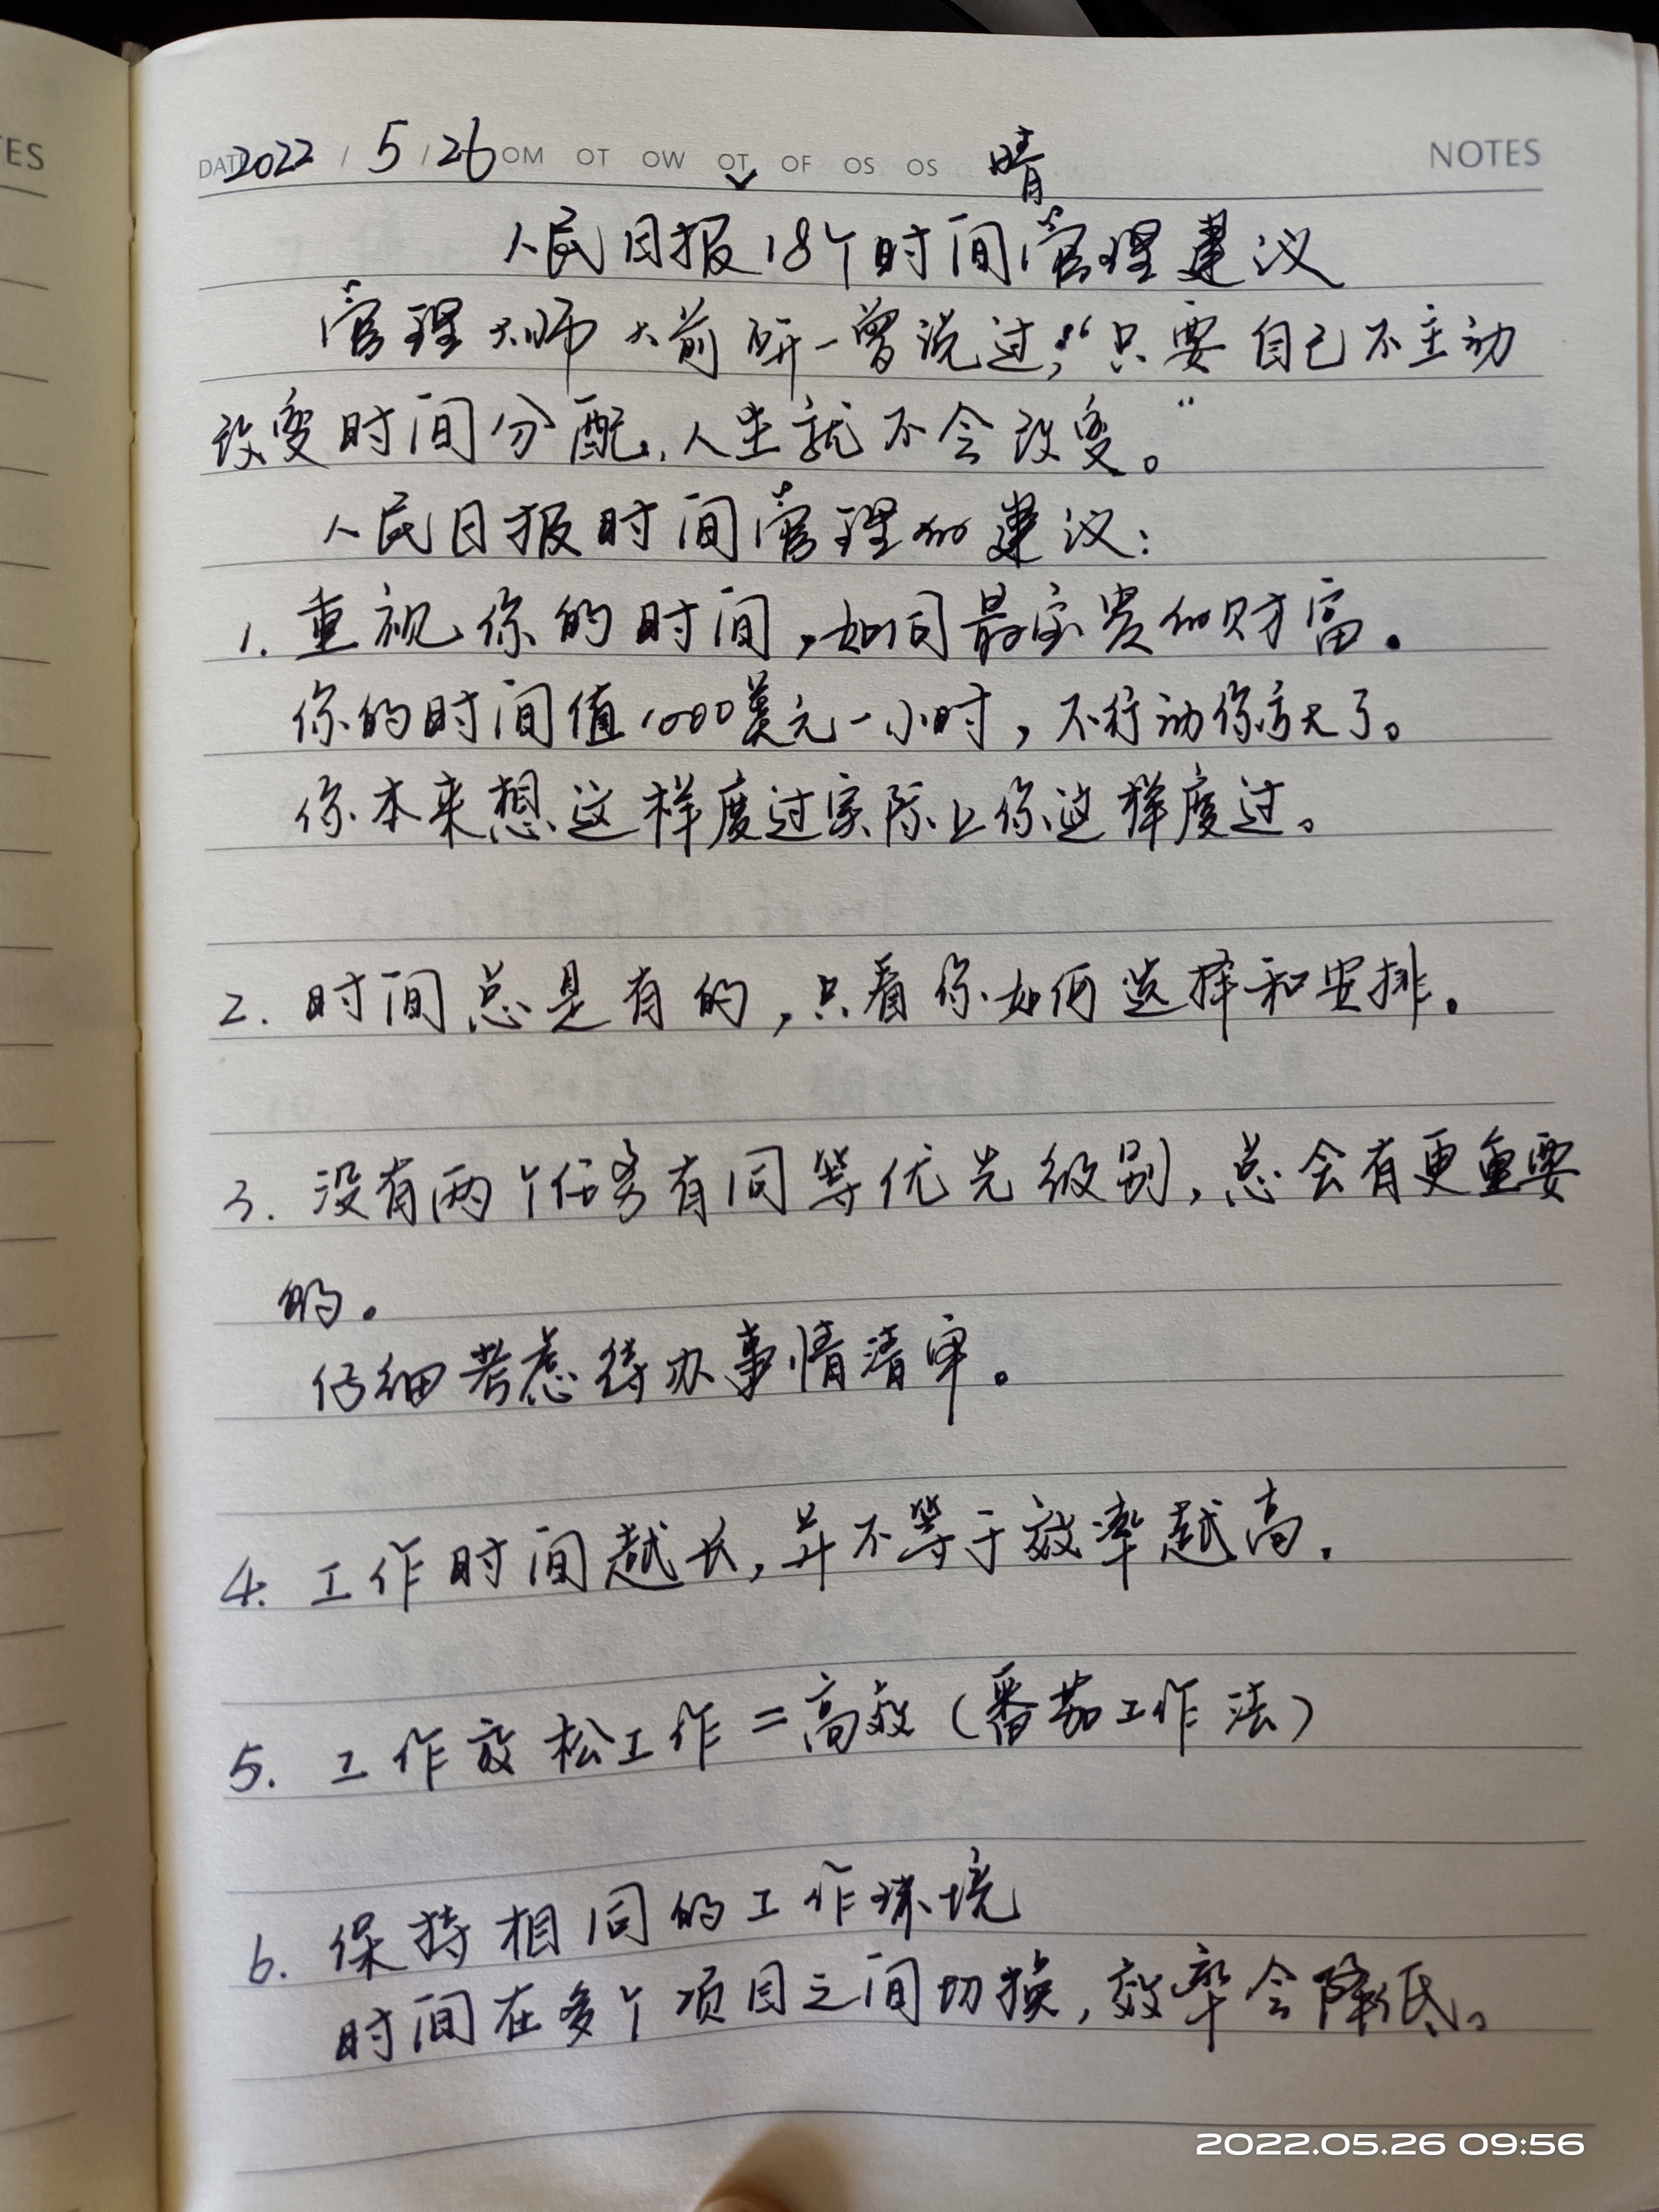 TES
DATE 2022 / 5 / 26 OM OT OW OT OF OS OS 晴 NOTES
人民日报18个时间管理建议
管理大师大前研一曾说过,“只要自己不主动
改变时间分配,人生就不会改变。”
人民日报时间管理的建议:
1. 重视你的时间,如同最宝贵的财富。
你的时间值1000美元一小时,不行动你亏大了。
你本来想这样度过实际上你这样度过。
2. 时间总是有的,只看你如何选择和安排。
3. 没有两个任务有同等优先级别,总会有更重要
的。
仔细考虑待办事情清单。
4. 工作时间越长,并不等于效率越高.
5. 工作放松工作=高效(番茄工作法)
6. 保持相同的工作环境
时间在多个项目之间切换,效率会降低。
2022.05.26 09:56